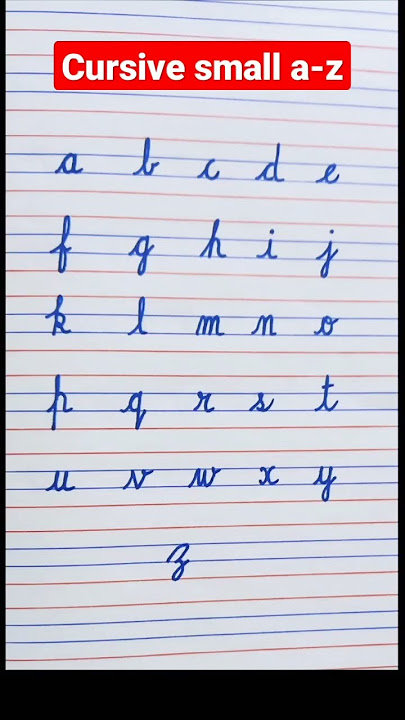 Cursive small a-z
a b c d e
f g h i j
k l m n o
p q r s t
u v w x y
z